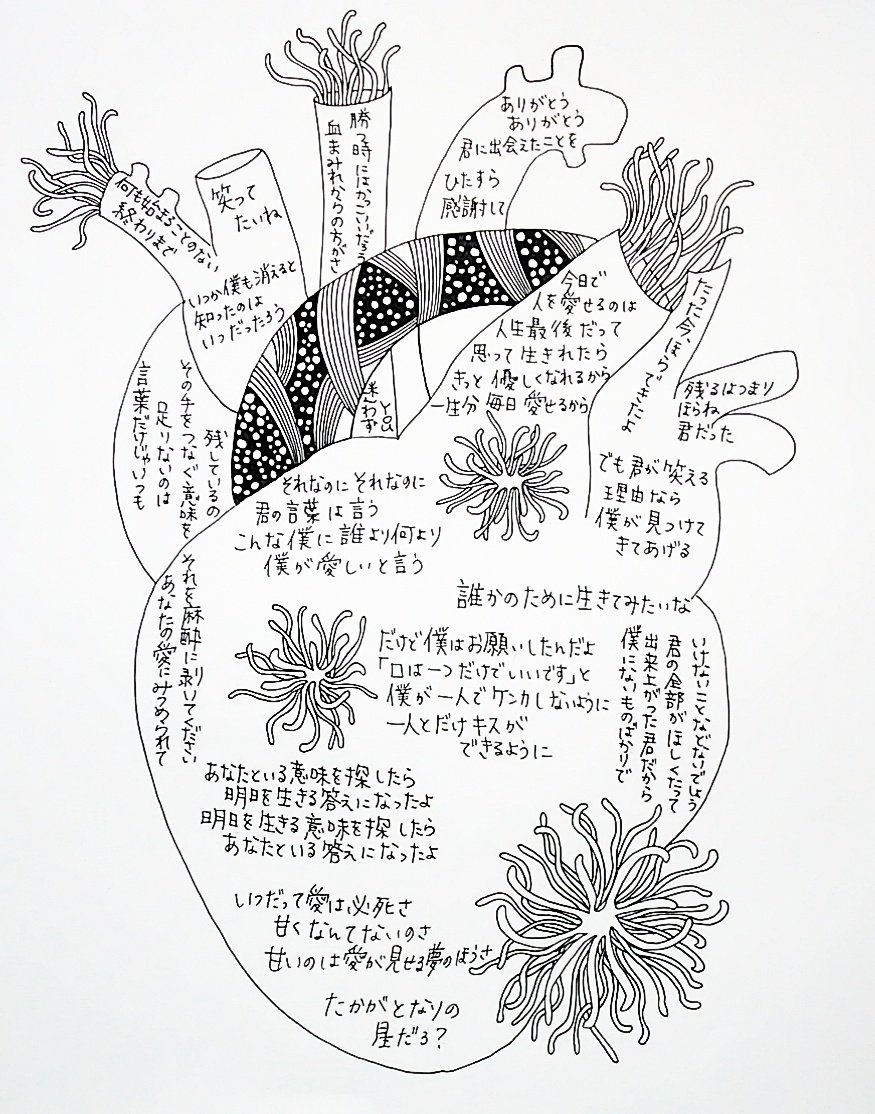 何も始まることのない
終わりまで
笑って
たいね
いつか僕も消えると
知ったのは
いつだったろう
血まみれからの方がさ
勝つ時にはかっこいいだろう
ありがとう
ありがとう
君に出会えたことを
ひたすら
感謝して
今日で
人を愛せるのは
人生最後だって
思って生きれたら
きっと優しくなれるから
一生分 毎日愛せるから
たった今、ほらできたよ
残るはつまり
ほらね
君だった
でも君が笑える
理由なら
僕が見つけて
きてあげる
迷わず
言葉だけじゃいつも
足りないのは
その手をつなぐ意味を
残しているの
それなのにそれなのに
君の言葉は言う
こんな僕に誰より何より
僕が愛しいと言う
誰かのために生きてみたいな
あなたの愛にみつめられて
それを麻酔に剥いてください
だけど僕はお願いしたんだよ
「口は一つだけでいいです」と
僕が一人でケンカしないように
一人とだけキスが
できるように
僕にないものばかりで
出来上がった君だから
君の全部がほしくたって
いけないことなどないでしょう
あなたといる意味を探したら
明日を生きる答えになったよ
明日を生きる意味を探したら
あなたといる答えになったよ
いつだって愛は必死さ
甘くなんてないのさ
甘いのは愛が見せる夢のほうさ
たかがとなりの
星だろ？